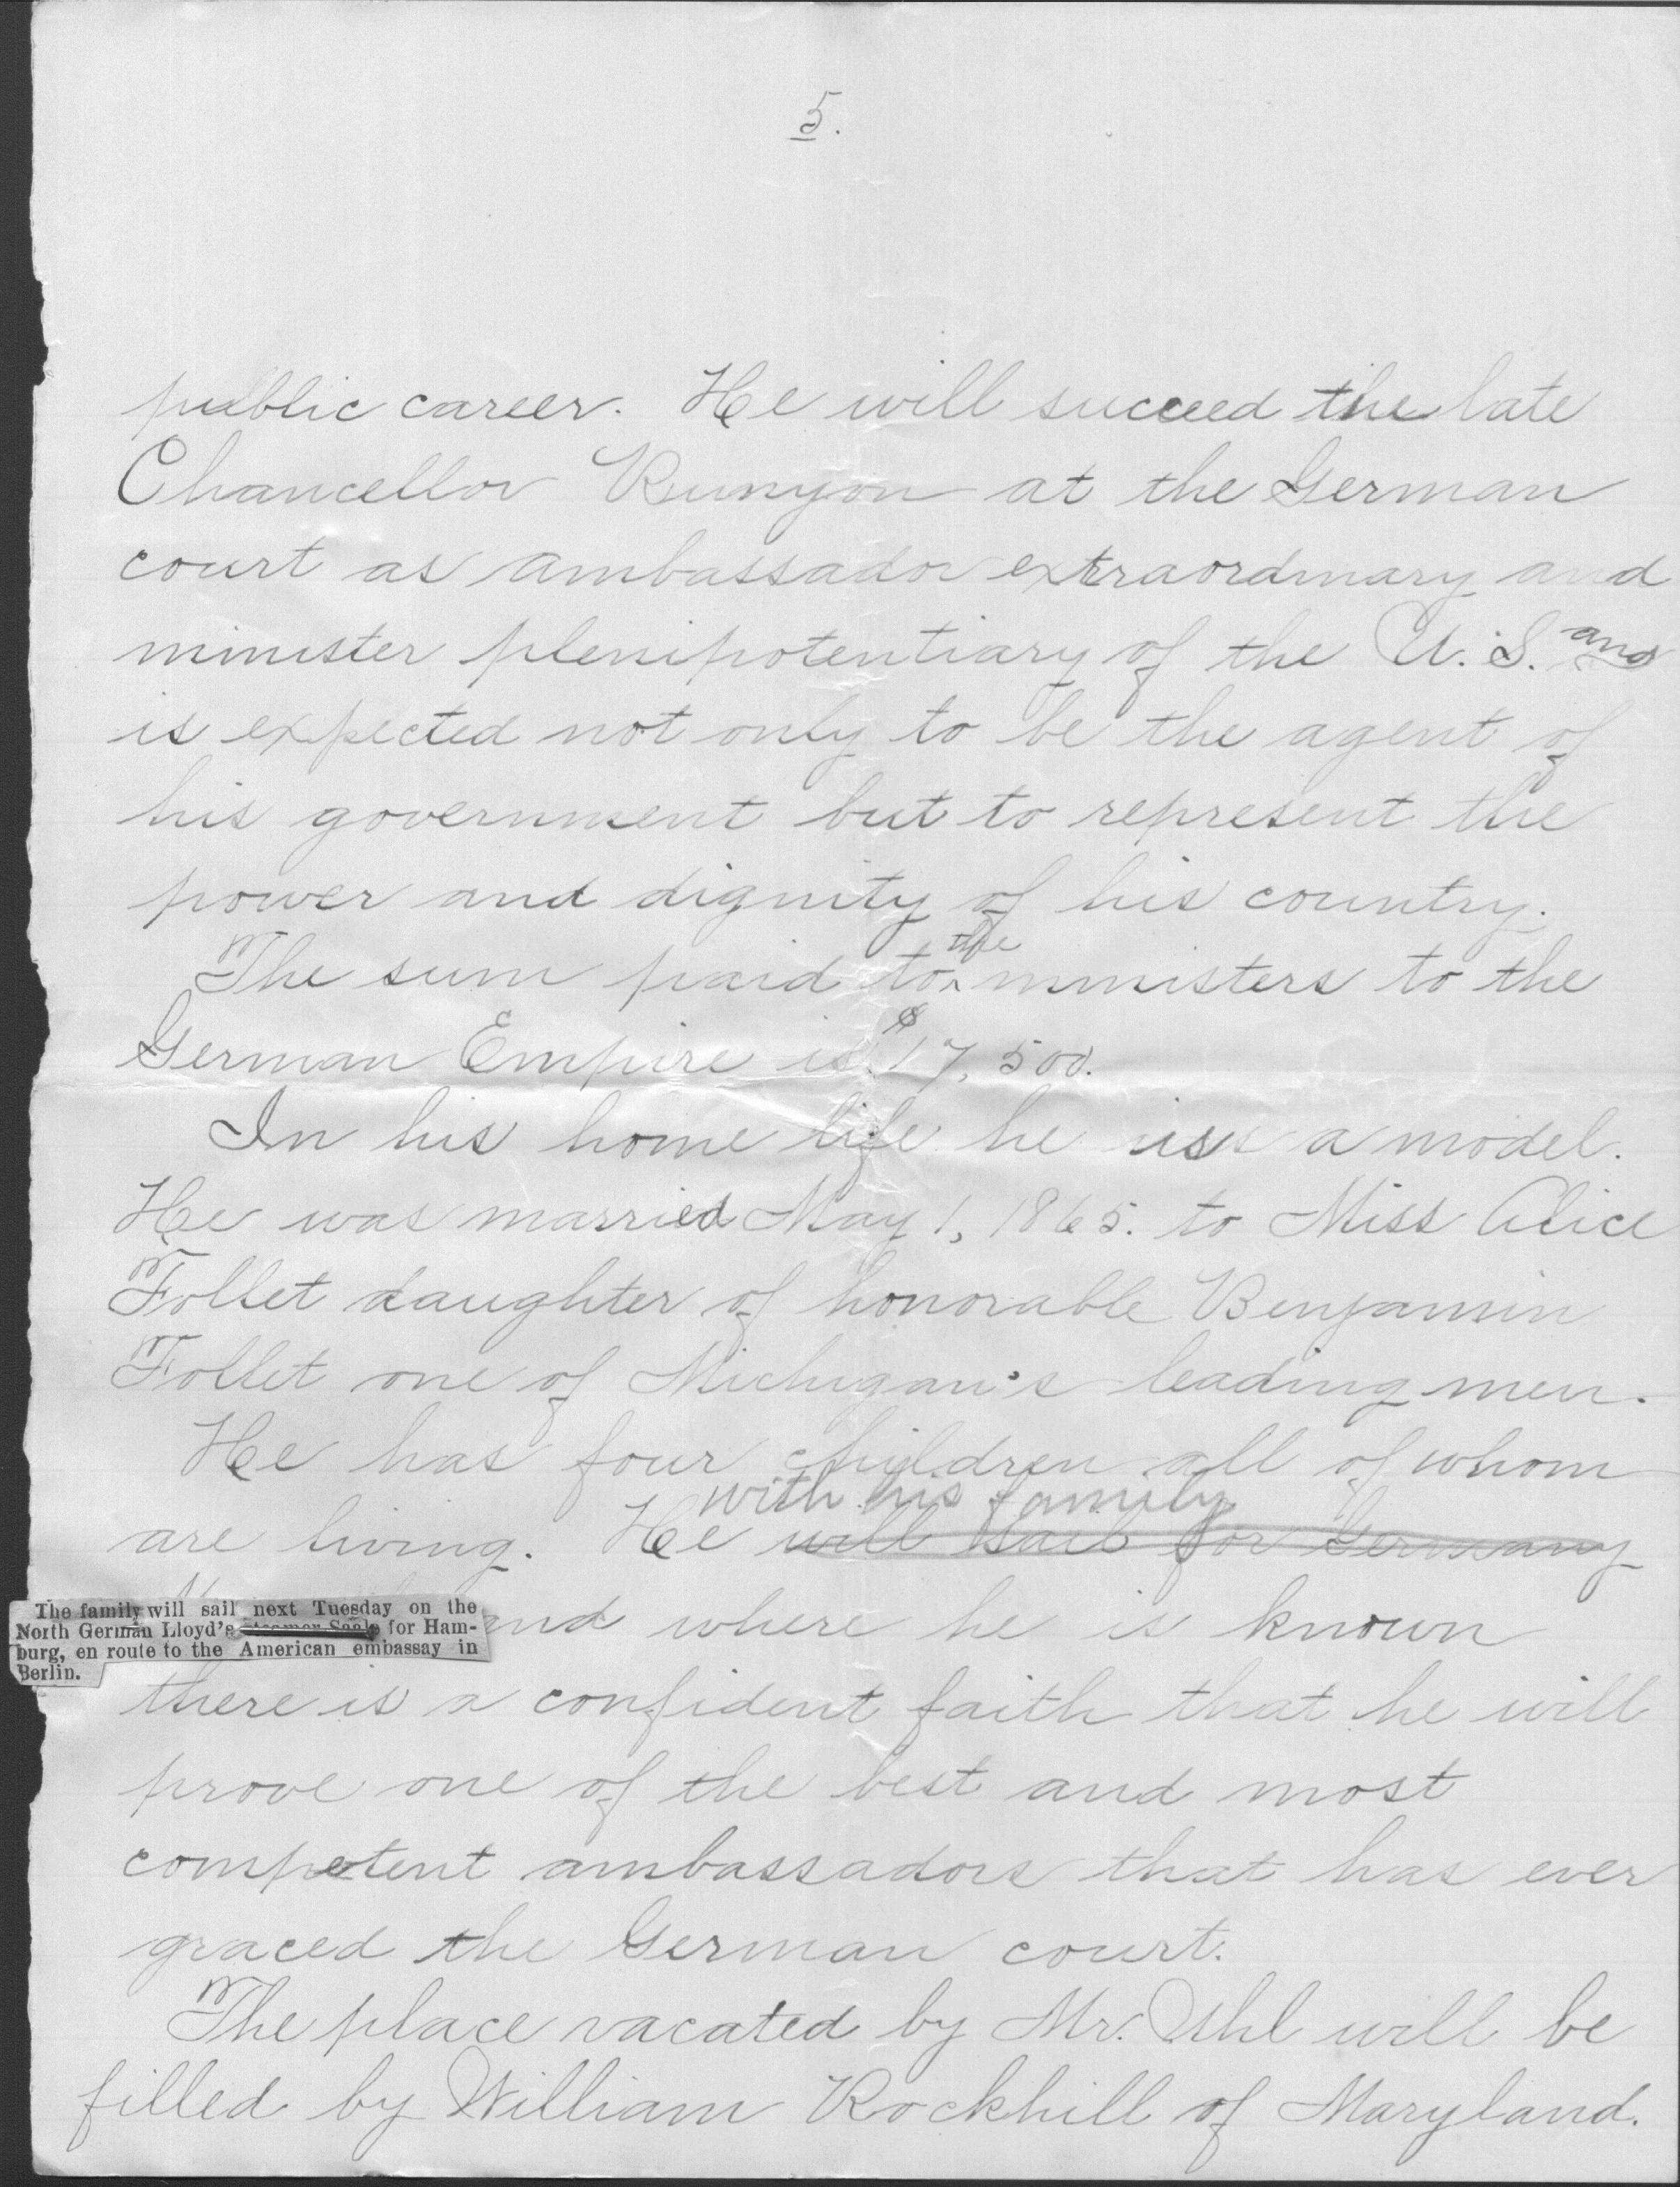 5.
public career. He will succeed the late
Chancellor Runyon at the German
court as ambassador extraordinary and
minister plenipotentiary of the U. S. and
is expected not only to be the agent of
his government but to represent the
power and dignity of his country.
The sum paid to the ministers to the
German Empire is $17,500.
In his home life he is a model.
He was married May 1, 1865. to Miss Alice
Follet daughter of honorable Benjamin
Follet one of Michigan's leading men.
He has four children all of whom
with his family
are living. He will sail for Germany
The family will sail next Tuesday on the
North German Lloyd's steamer Saale for Ham-
burg, en route to the American embassay in
Berlin.
and where he is known
there is a confident faith that he will
prove one of the best and most
competent ambassadors that has ever
graced the German court.
The place vacated by Mr. Uhl will be
filled by William Rockhill of Maryland.